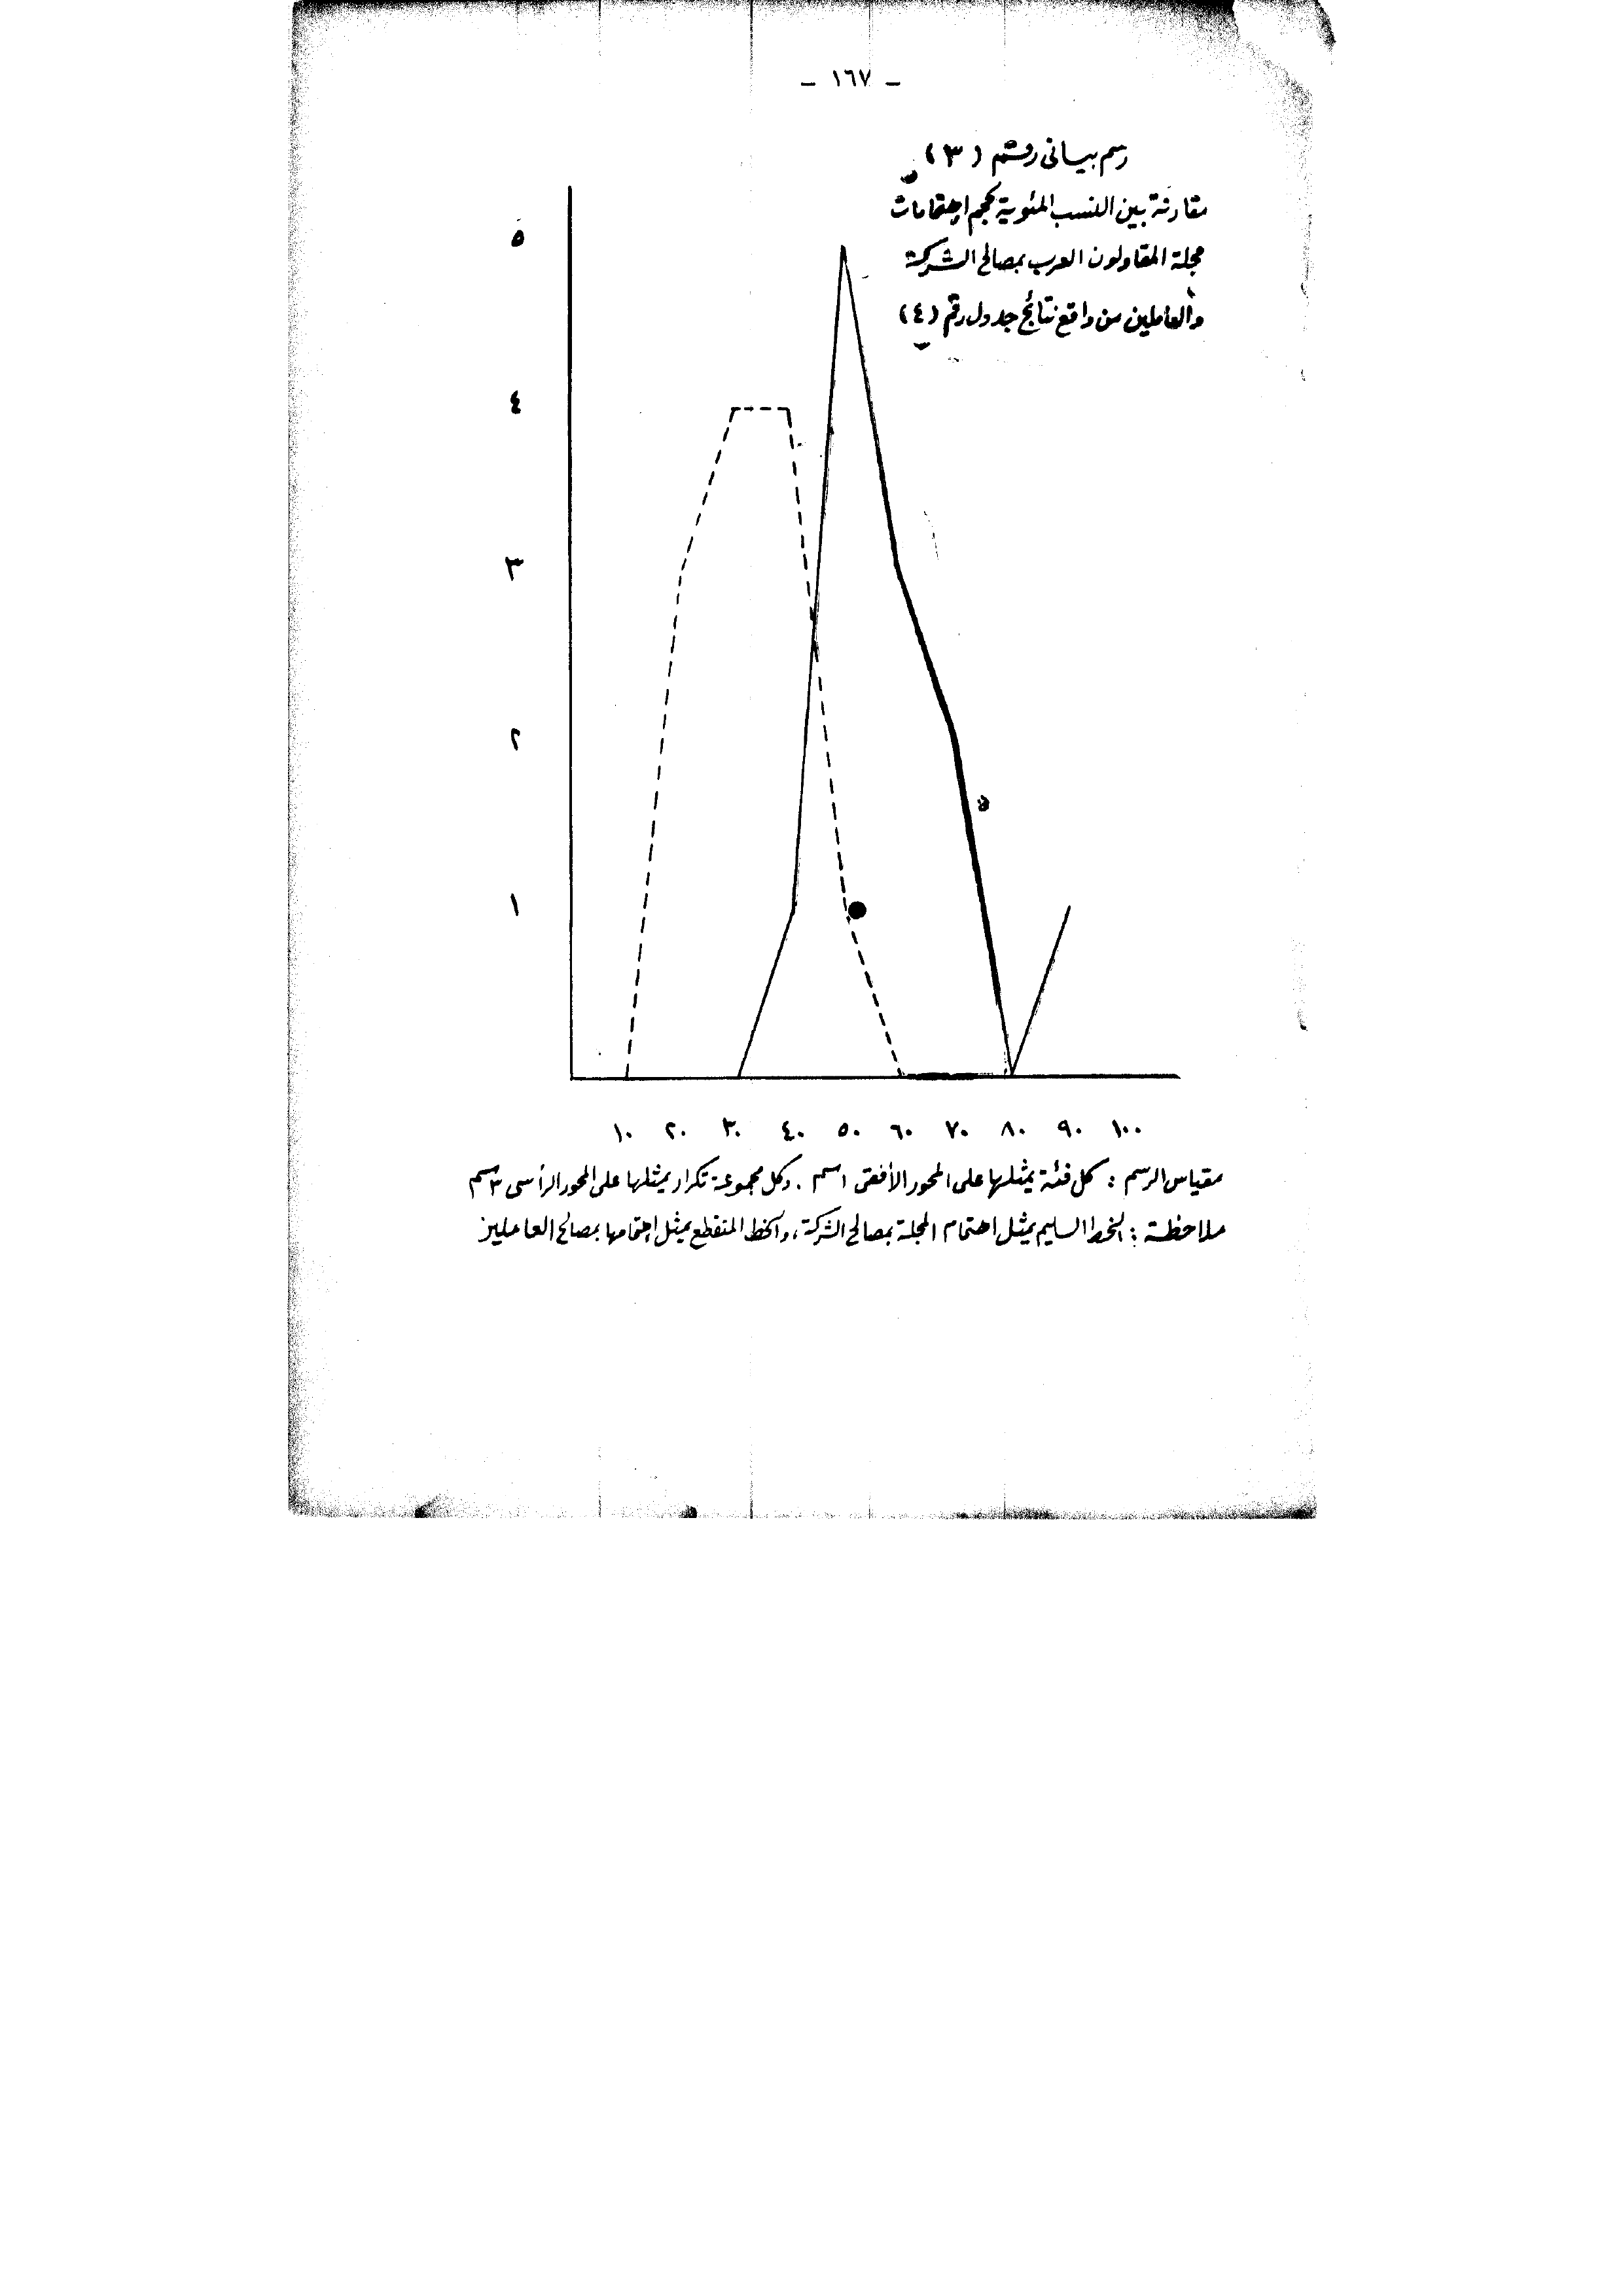 – ١٦٧ –
رسم بيانى رقم (٣)
مقارنة بين النسب المئوية لحجم إهتمامات
مجلة المقاولون العرب بمصالح الشركة
والعاملين من واقع نتائج جدول رقم (٤)
٥
٤
٣
٢
١
١٠ ٢٠ ٣٠ ٤٠ ٥٠ ٦٠ ٧٠ ٨٠ ٩٠ ١٠٠
مقياس الرسم : كل فئة يمثلها على المحور الأفقى ١سم . وكل مجموعة تكرار يمثلها على المحور الرأسى ٣سم
ملاحظة : الخط السليم يمثل اهتمام المجلة بمصالح الشركة ، والخط المتقطع يمثل إهتمامها بمصالح العاملين